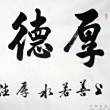 厚德
上善若水厚德